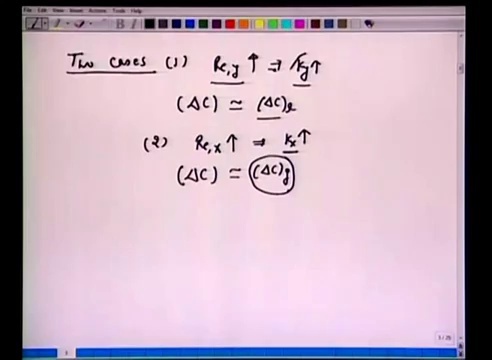 File Edit View Insert Actions Tools Help
Two cases (1) Re,y ↑ ⇒ ky↑
(ΔC) ≃ (ΔC)l
(2) Re,x ↑ ⇒ kx↑
(ΔC) ≃ (ΔC)g